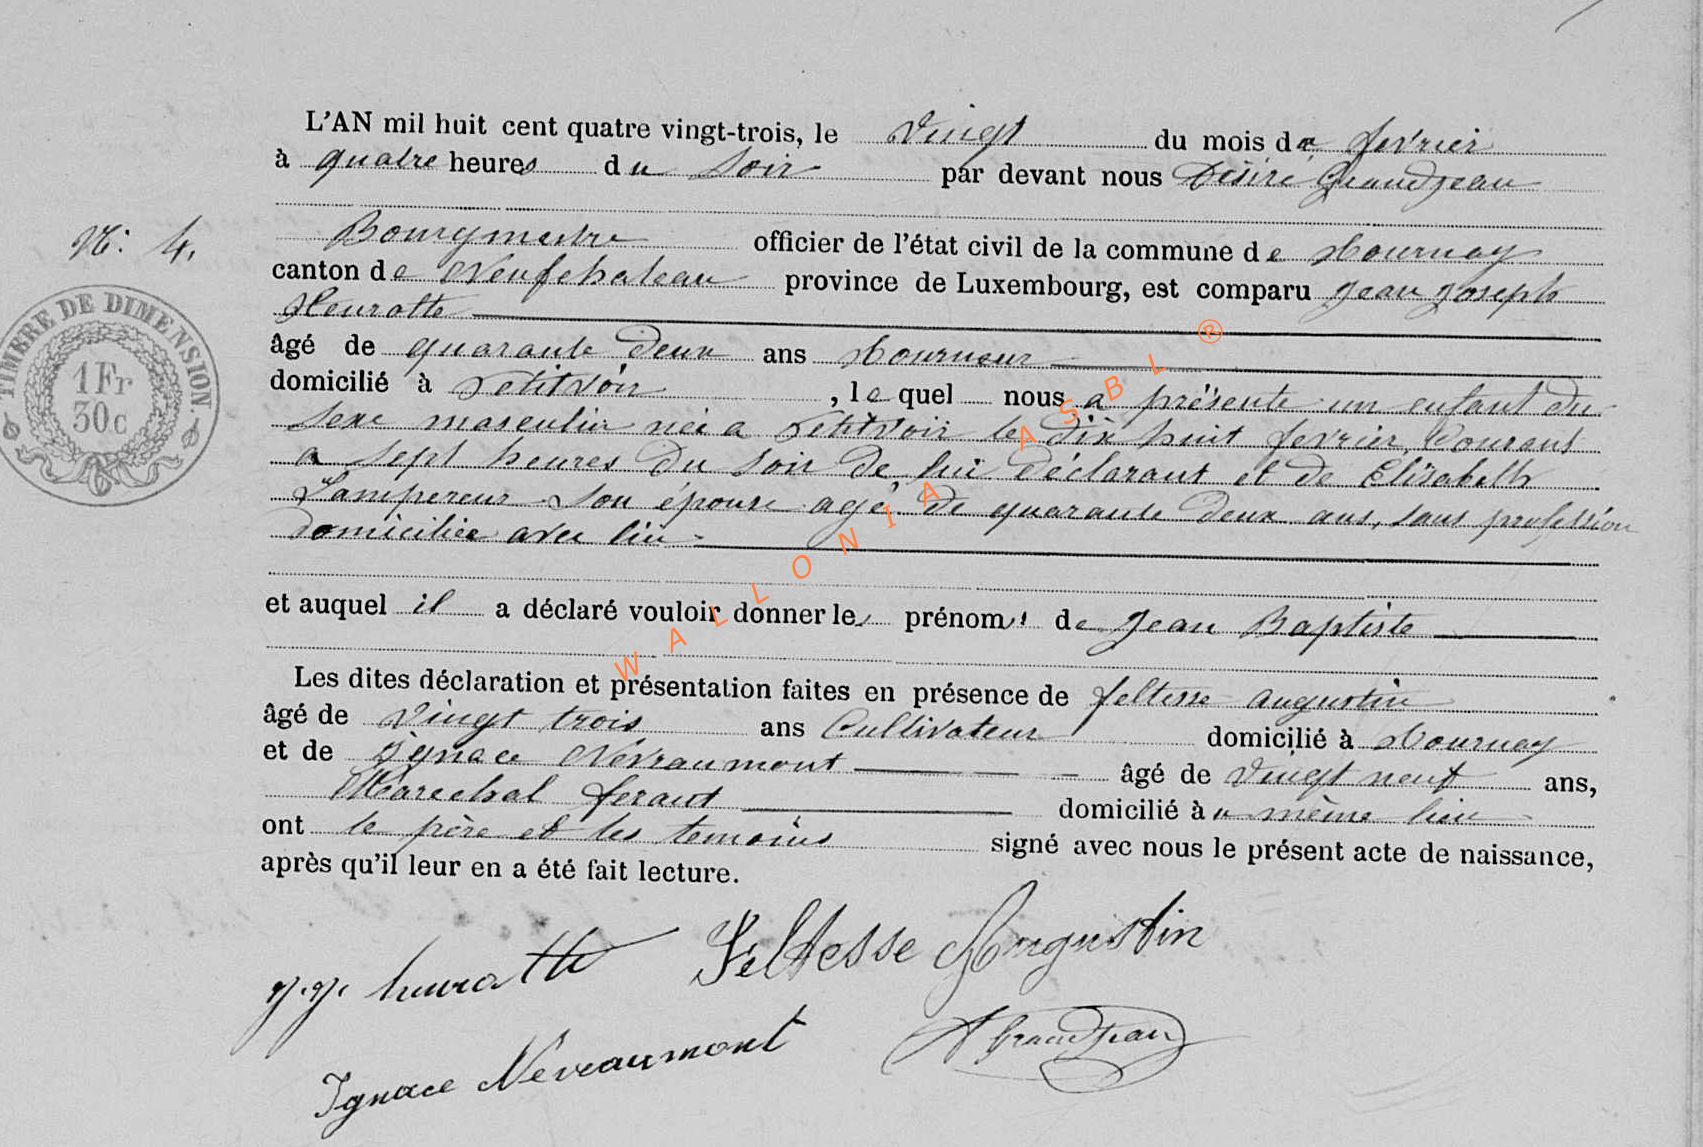 L'AN mil huit cent quatre vingt-trois, le Vingt du mois de fevrier
à quatre heures du soir par devant nous Désiré Grandjean
N°: 4.
Bourgmestre officier de l'état civil de la commune de Tournay
canton de Neufchateau province de Luxembourg, est comparu Jean Joseph
Heurotte
TIMBRE DE DIMENSION.
1 Fr
30c
âgé de quarante deux ans Tourneur
domicilié à Petitvoir, le quel nous a présenté un enfant du
sexe masculin née a Petitvoir le dix huit fevrier courant
a sept heures du soir de lui déclarant et de Elisabeth
Lampereur son épouse agé de quarante deux ans, sans profession
domiciliée avec lui
et auquel il a déclaré vouloir donner les prénoms de Jean Baptiste
Les dites déclaration et présentation faites en présence de feltesse augustin
âgé de Vingt trois ans Cultivateur domicilié à Tournay
et de Ignace Nevraumont âgé de Vingt neuf ans,
Marechal ferant domicilié àu même lieu
ont le père et les temoins signé avec nous le présent acte de naissance,
après qu'il leur en a été fait lecture.
J.J. heurotte Feltesse Augustin
Ignace Nevraumont Grandjean
WALLONIA ASBL ®